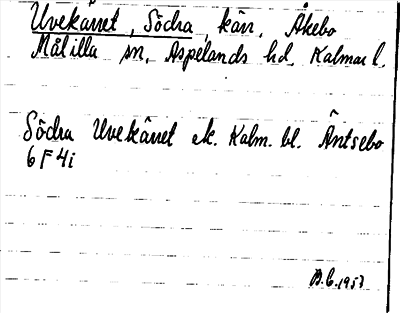 Uvekärret, Södra, kärr, Åkebo
Målilla sn, Aspelands hd, Kalmar l.
Södra Uvekärret ek. Kalm. bl. Äntsebo
6F4i
B.C. 1953